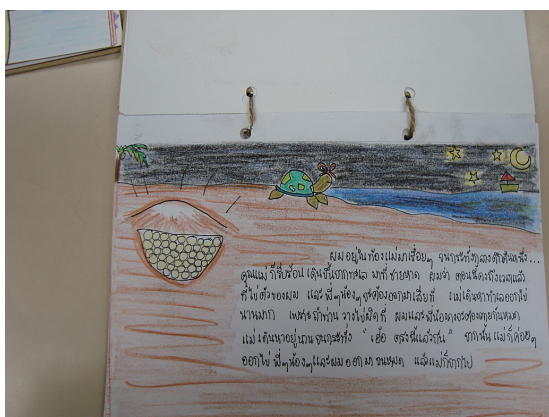 ผมอยู่ในท้องแม่มาเรื่อยๆ จนกระทั่งกลางดึกคืนหนึ่ง...
คุณแม่ก็รีบร้อน เดินขึ้นจากทะเล มาที่ชายหาด ผมว่า ตอนนี้คงถึงเวลาแล้ว
ที่ไข่ตัวของผม และพี่ๆน้องๆ จะต้องออกมาเสียที แม่เดินหาทำเลออกไข่
นานมาก เพราะถ้าท่าน วางไข่ผิดที่ ผมและพี่น้องคงจะต้องตายกันหมด
แม่เดินหาอยู่นาน จนกระทั่ง " เฮ้อ ตรงนี้แล้วกัน " จากนั้นแม่ก็ค่อยๆ
ออกไข่ พี่ๆน้องๆและผม ออกมาจนหมด แล้วแม่ก็จากไป